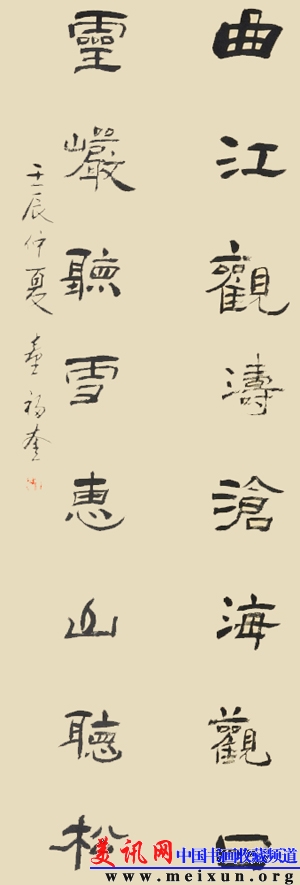 曲江觀濤滄海觀日
靈巖聽雪惠山聽松
壬辰仲夏 童福奎
美讯网 中国书画收藏频道
www.meixun.org